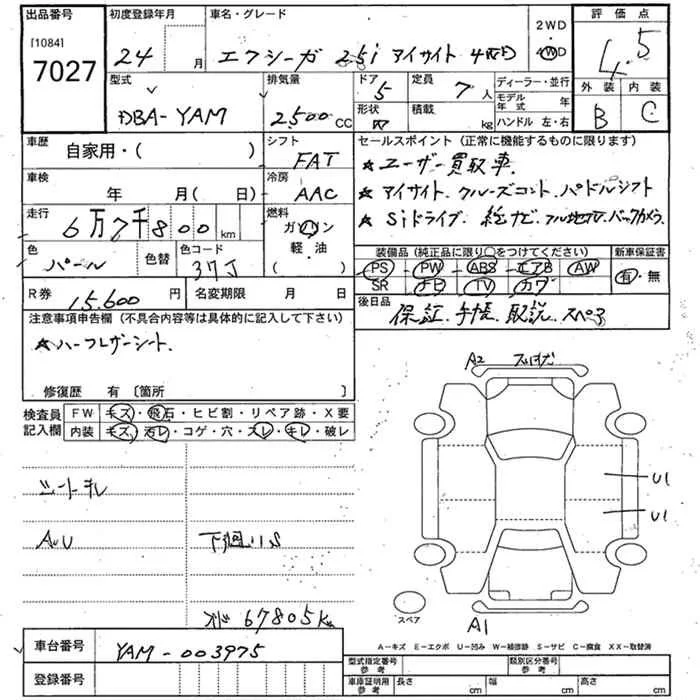 出品番号
[1084]
7027
初度登録年月
24 月
車名・グレード
エクシーガ 2.5i アイサイト 4WD
2WD
4WD
評価点
4.5
外装 内装
B C
型式
DBA-YAM
排気量
2500 CC
ドア
5
定員
7人
形状
積載
kg
ディーラー・並行
モデル年式 年
ハンドル 左・右
車歴
自家用・( )
シフト
FAT
車検
年 月( 日)
冷房
AAC
走行
6万7千800 km
燃料
ガソリン
軽・油
( )
色
パール
色替
色コード
37J
R券
15,600円
名変期限 月 日
セールスポイント (正常に機能するものに限ります)
★ユーザー買取車.
★アイサイト. クルーズコント. パドルシフト
★Siドライブ. 純ナビ. フル地デジ. バックカメラ.
装備品 (純正品に限り○をつけてください)
PS - PW - ABS - エアB AW
SR TV カワ
新車保証書
有・無
後日品
保証. 手帳. 取説. スペア
注意事項申告欄 (不具合内容等は具体的に記入して下さい)
★ハーフレザーシート.
修復歴 有 〔箇所 〕
検査員記入欄
FW キズ・飛石・ヒビ割・リペア跡・X要
内装 キズ・汚レ・コゲ・穴・スレ・キレ・破レ
シートキレ
AU
下廻りS
67805km
A2
U1
U1
A1
スペア
A-キズ E-エクボ U-凹み W-補修跡 S-サビ C-腐食 XX-取替済
車台番号
YAM-003975
登録番号
型式指定番号 参考
類別区分番号 参考
車庫証明用 参考
長さ cm
幅 cm
高さ cm